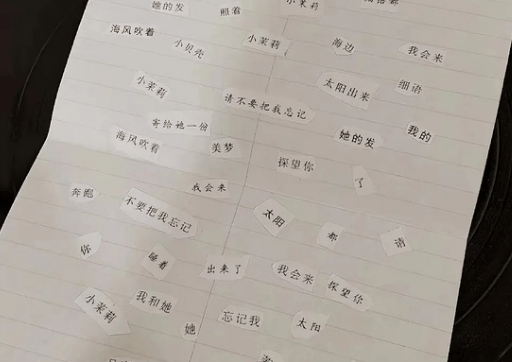 她的发 照着 小茉莉
海风吹着 小贝壳 小茉莉 海边 我会来
小茉莉 请不要把我忘记 太阳出来 细语
寄给她一份 她的发 我的
海风吹着 美梦 探望你 了
奔跑 我会来
不要把我忘记 太阳 都 请
你 睡着 出来了 我会来 探望你
小茉莉 我和她 她 忘记我 太阳